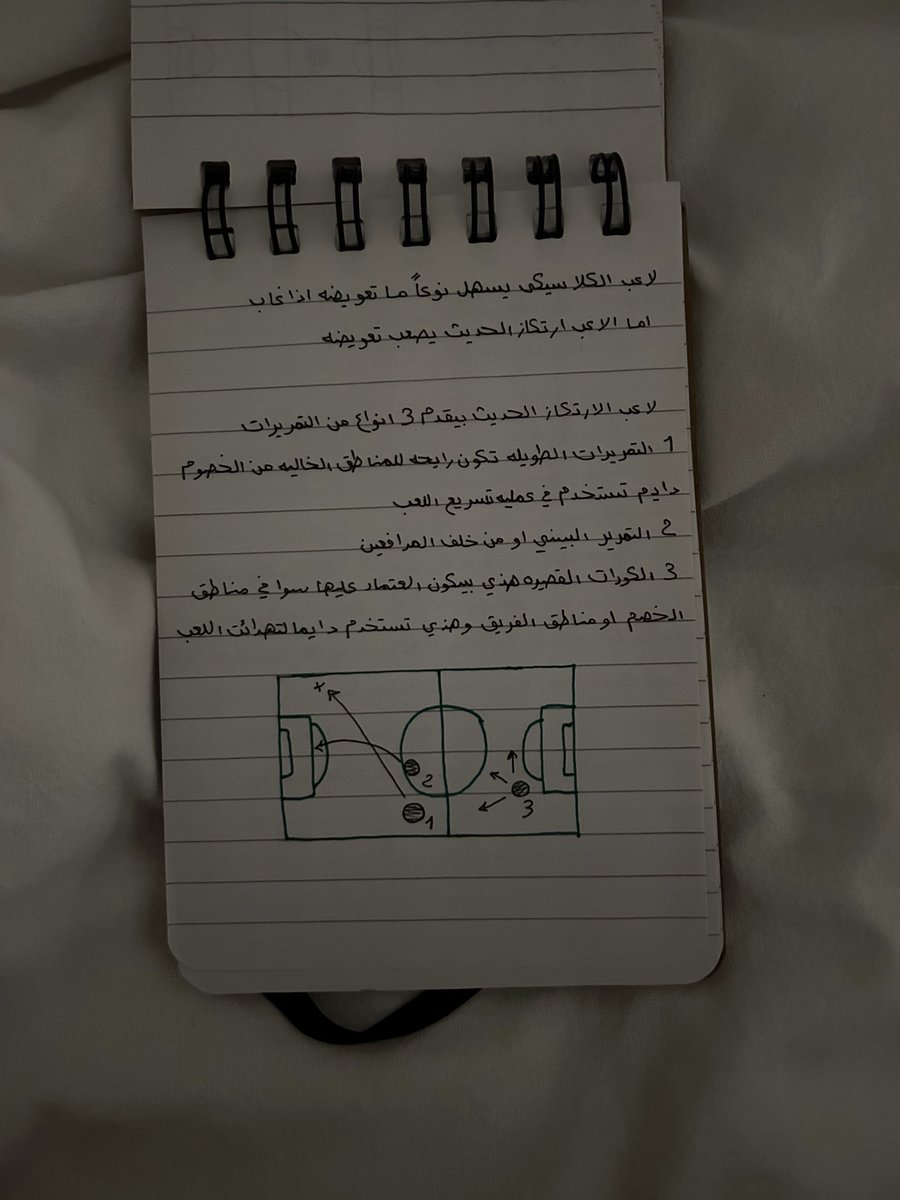 لاعب الكلاسيكي يسهل نوعاً ما تعويضه اذا غاب
اما الاعب ارتكاز الحديث يصعب تعويضه
لاعب الارتكاز الحديث بيقدم 3 انواع من التمريرات
1 التمريرات الطويله تكون رايحه للمناطق الخاليه من الخصوم
دايم تستخدم في عمليه تسريع اللعب
2 التمرير البيني او من خلف المدافعين
3 الكورات القصيره هذي بيكون العتماد عليها سوا في مناطق
الخصم او مناطق الفريق وهذي تستخدم دايما لتهدائت اللعب
2
1
3